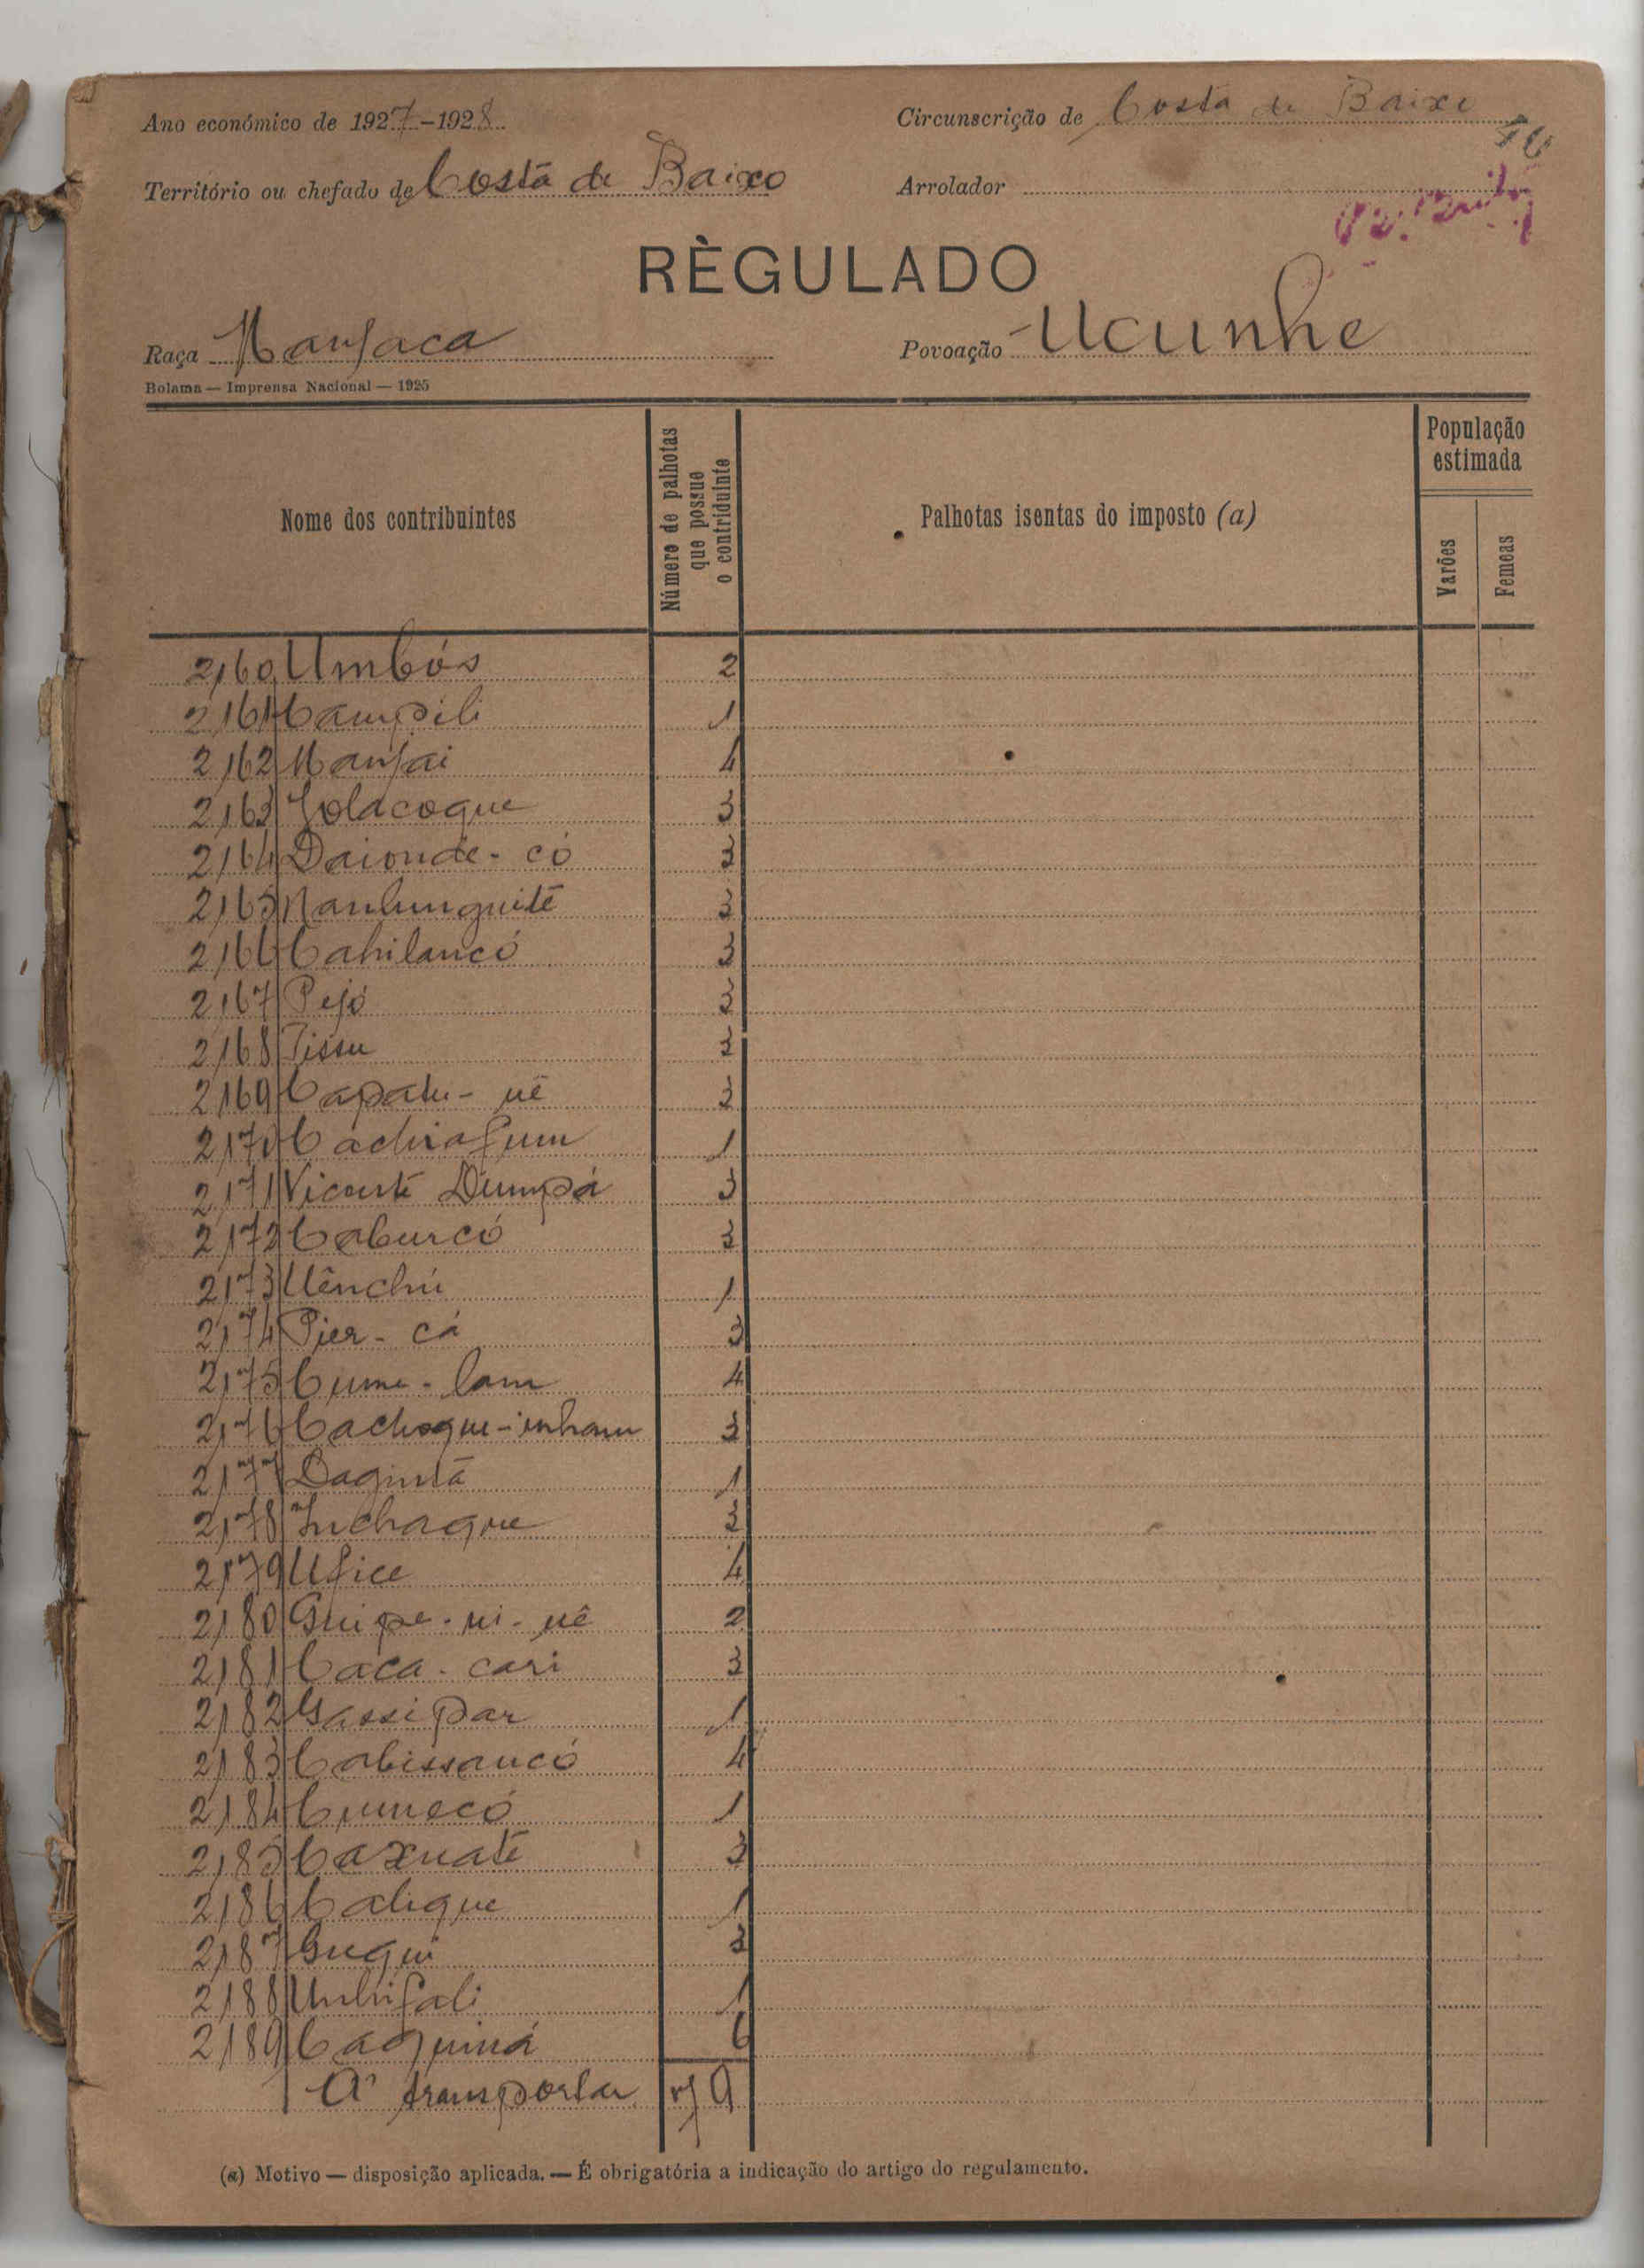 Ano económico de 1927-1928
Circunscrição de Costa de Baixo
40
Território ou chefado de Costa de Baixo
Arrolador
RÈGULADO
Raça Manjaca
Povoação Ucunhe
Bolama — Imprensa Nacional — 1925
Nome dos contribuintes
Número de palhotas que possue o contriduinte
Palhotas isentas do imposto (a)
População estimada
Varões
Femeas
2,160 Umbós 2
2,161 Campili 1
2,162 Manjai 4
2,163 Jolacoque 3
2,164 Daionde-có 3
2,165 Nanhunguitè 3
2,166 Cahilancó 3
2,167 Pejó 3
2,168 Tissu 3
2,169 Capatu-uê 3
2,170 Cachiafum 1
2,171 Vicente Dumpá 3
2,172 Caburcó 3
2,173 Uênchú 1
2,174 Pier-cá 3
2,175 Cume-lam 4
2,176 Cachoque-inham 3
2,177 Dagintá 1
2,178 Inchaque 3
2,179 Ufice 4
2,180 Guipe-ni-uê 2
2,181 Caca-cari 3
2,182 Gassipar 1
2,183 Cabissancó 4
2,184 Cumecó 1
2,185 Caxuatê 3
2,186 Calique 1
2,187 Guqui 3
2,188 Unhifali 1
2,189 Caquiná 6
A' transportar 79
(a) Motivo — disposição aplicada. — É obrigatória a indicação do artigo do regulamento.